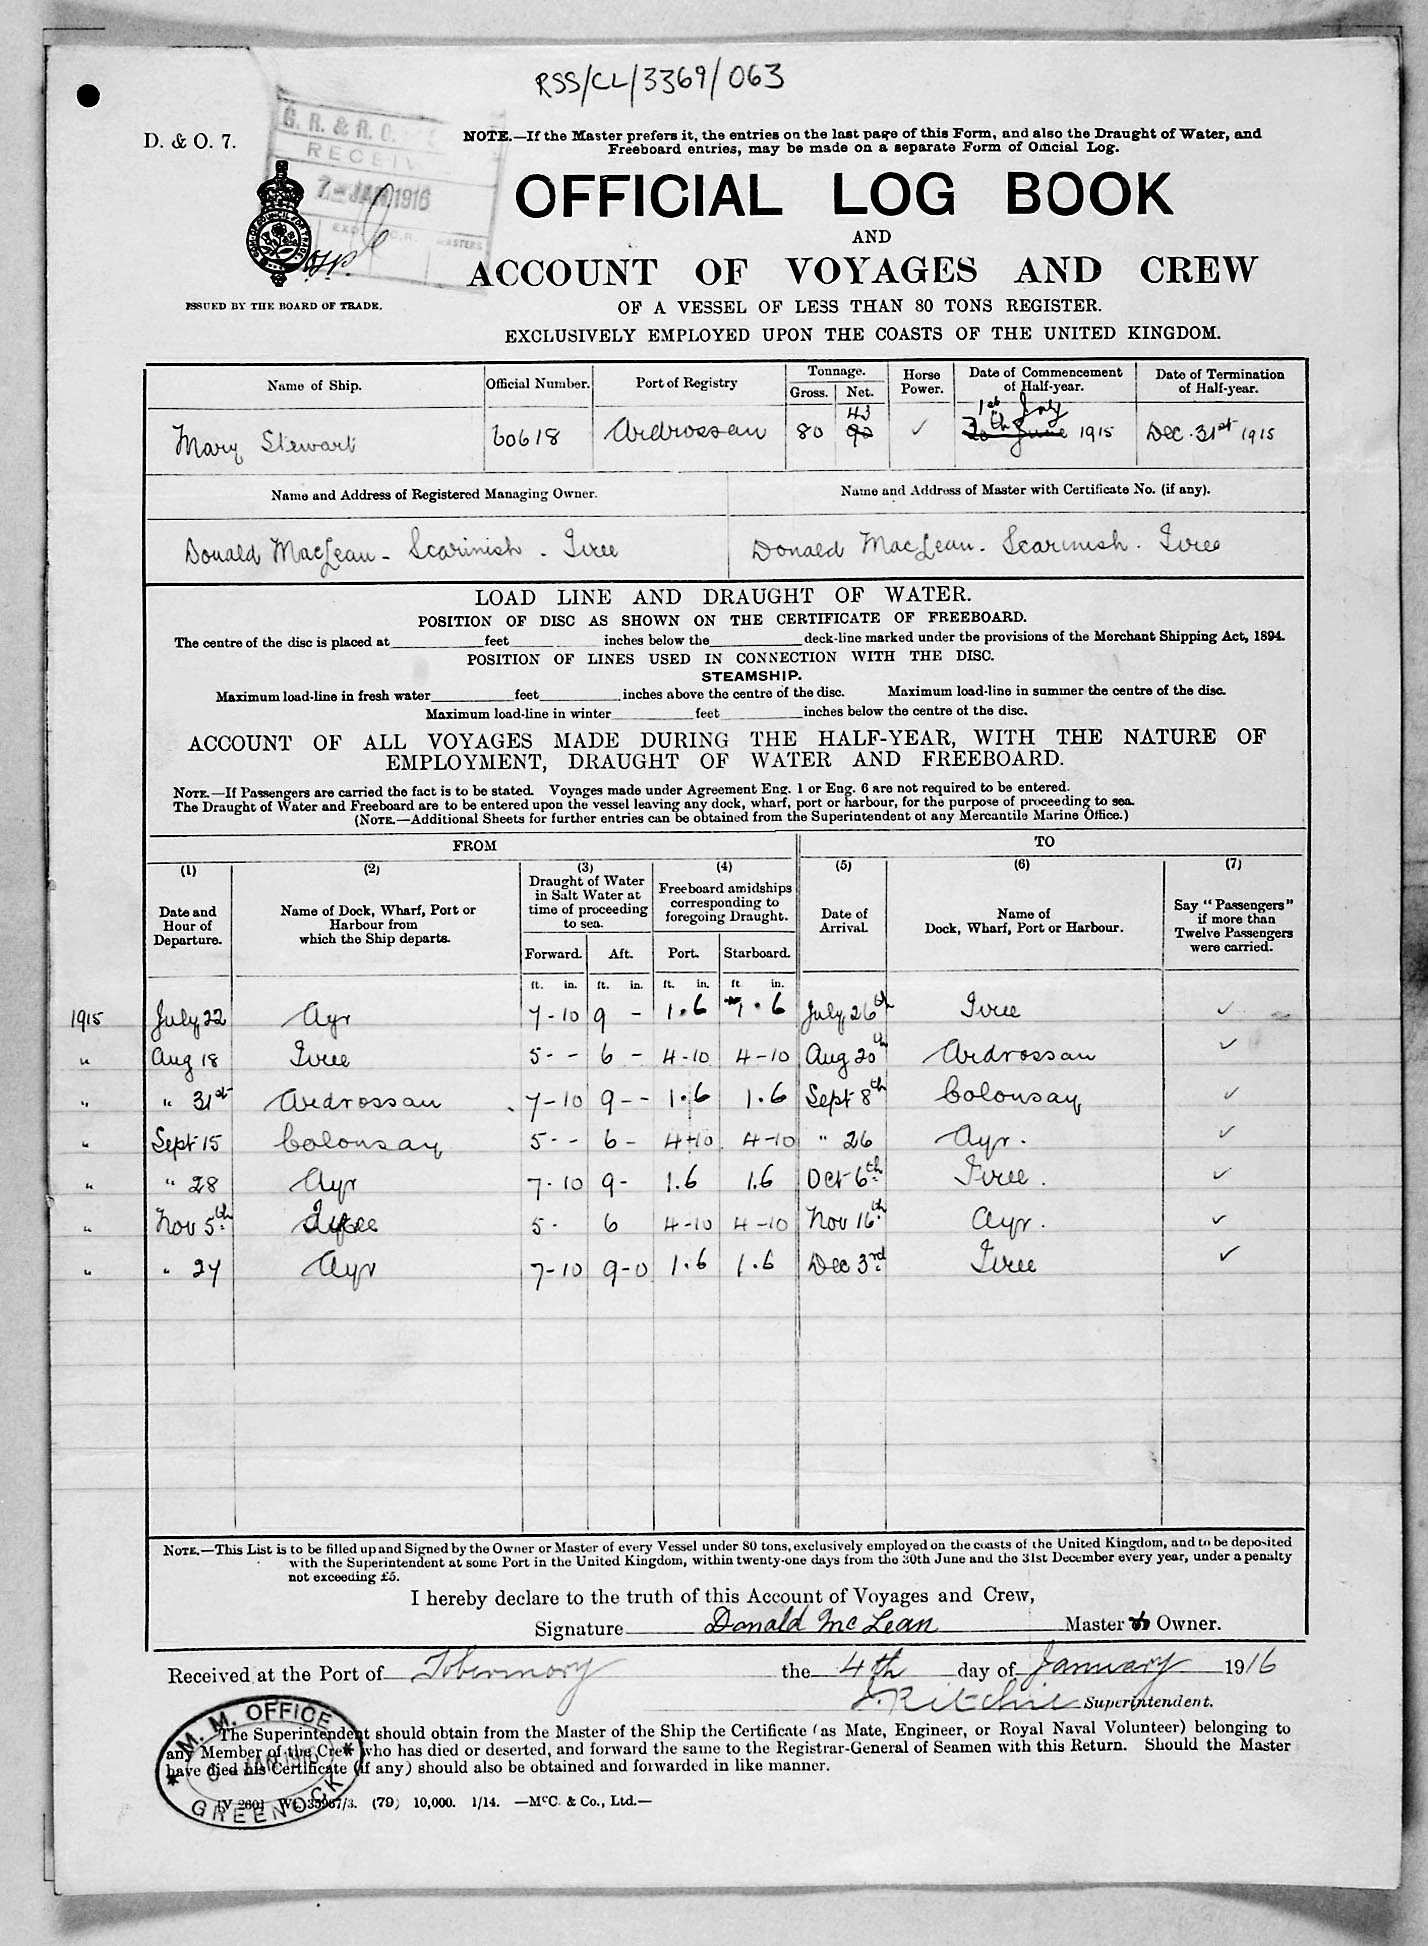 RSS/CL/3369/063
D. & O. 7.
G. R. & R. O.
RECEIV
7 - JAN 1916
NOTE.—If the Master prefers it, the entries on the last page of this Form, and also the Draught of Water, and
Freeboard entries, may be made on a separate Form of Official Log.
OFFICIAL LOG BOOK
AND
ACCOUNT OF VOYAGES AND CREW
OF A VESSEL OF LESS THAN 80 TONS REGISTER.
EXCLUSIVELY EMPLOYED UPON THE COASTS OF THE UNITED KINGDOM.
ISSUED BY THE BOARD OF TRADE.
Name of Ship. Official Number. Port of Registry Tonnage. Gross. Net. Horse Power. Date of Commencement of Half-year. Date of Termination of Half-year.
43 1st July
Mary Stewart 60618 Ardrossan 80 90 ✓ 30th June 1915 Dec. 31st 1915
Name and Address of Registered Managing Owner. Name and Address of Master with Certificate No. (if any).
Donald MacLean - Scarinish - Tiree Donald MacLean. Scarinish. Tiree
LOAD LINE AND DRAUGHT OF WATER.
POSITION OF DISC AS SHOWN ON THE CERTIFICATE OF FREEBOARD.
The centre of the disc is placed at feet inches below the deck-line marked under the provisions of the Merchant Shipping Act, 1894.
POSITION OF LINES USED IN CONNECTION WITH THE DISC.
STEAMSHIP.
Maximum load-line in fresh water feet inches above the centre of the disc. Maximum load-line in summer the centre of the disc.
Maximum load-line in winter feet inches below the centre of the disc.
ACCOUNT OF ALL VOYAGES MADE DURING THE HALF-YEAR, WITH THE NATURE OF
EMPLOYMENT, DRAUGHT OF WATER AND FREEBOARD.
NOTE.—If Passengers are carried the fact is to be stated. Voyages made under Agreement Eng. 1 or Eng. 6 are not required to be entered.
The Draught of Water and Freeboard are to be entered upon the vessel leaving any dock, wharf, port or harbour, for the purpose of proceeding to sea.
(NOTE.—Additional Sheets for further entries can be obtained from the Superintendent of any Mercantile Marine Office.)
FROM TO
(1) (2) (3) (4) (5) (6) (7)
Date and Hour of Departure. Name of Dock, Wharf, Port or Harbour from which the Ship departs. Draught of Water in Salt Water at time of proceeding to sea. Freeboard amidships corresponding to foregoing Draught. Date of Arrival. Name of Dock, Wharf, Port or Harbour. Say "Passengers" if more than Twelve Passengers were carried.
Forward. Aft. Port. Starboard.
ft. in. ft. in. ft. in. ft. in.
1915 July 22 Ayr 7-10 9 - 1.6 1.6 July 26th Tiree ✓
" Aug 18 Tiree 5- - 6 - 4-10 4-10 Aug 20th Ardrossan ✓
" " 31st Ardrossan 7-10 9 - - 1.6 1.6 Sept 8th Colonsay ✓
" Sept 15 Colonsay 5- - 6 - 4-10 4-10 " 26 Ayr. ✓
" " 28 Ayr 7-10 9 - 1.6 1.6 Oct 6th Tiree. ✓
" Nov 5th Tiree 5- 6 4-10 4-10 Nov 16th Ayr. ✓
" " 27 Ayr 7-10 9-0 1.6 1.6 Dec 3rd Tiree ✓
NOTE.—This List is to be filled up and Signed by the Owner or Master of every Vessel under 80 tons, exclusively employed on the coasts of the United Kingdom, and to be deposited
with the Superintendent at some Port in the United Kingdom, within twenty-one days from the 30th June and the 31st December every year, under a penalty
not exceeding £5.
I hereby declare to the truth of this Account of Voyages and Crew,
Signature Donald McLean Master & Owner.
Received at the Port of Tobermory the 4th day of January 1916
J. Ritchie Superintendent.
M. M. OFFICE
JAN 1916
GREENOCK
The Superintendent should obtain from the Master of the Ship the Certificate (as Mate, Engineer, or Royal Naval Volunteer) belonging to
any Member of the Crew who has died or deserted, and forward the same to the Registrar-General of Seamen with this Return. Should the Master
have died his Certificate (if any) should also be obtained and forwarded in like manner.
35967/3. (79) 10,000. 1/14. —McC. & Co., Ltd.—